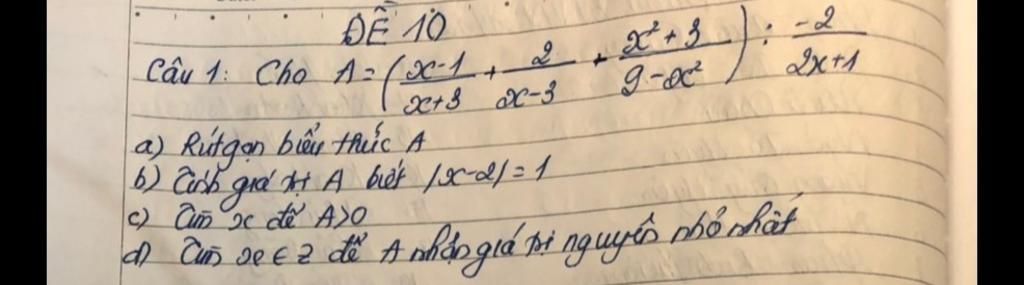 ĐỀ 10
Câu 1: Cho A = (x-1/x+3 + 2/x-3 + x²+3/9-x²) : -2/2x+1
a) Rút gọn biểu thức A
b) Tính giá trị A biết |x-2| = 1
c) Tìm x để A>0
d) Tìm x ∈ Z để A nhận giá trị nguyên nhỏ nhất